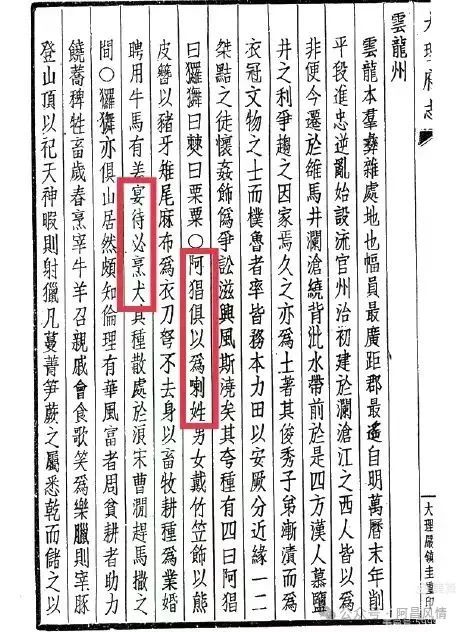 大理府志
大理嚴鎮圭重印
雲龍州
雲龍本羣彝雜處地也幅員最廣距郡最遙自明萬曆末年削
平段進忠逆亂始設流官州治初建於瀾滄江之西人皆以爲
非便今遷於雒馬井瀾滄繞背沘水帶前於是四方漢人慕鹽
井之利爭趨之因家焉久之亦爲土著其俊秀子弟漸漬而爲
衣冠文物之士而樸魯者率皆務本力田以安厥分近緣一二
桀黠之徒懷姦飾僞爭訟滋興風斯澆矣其夸種有四曰阿猖
曰玀舞曰僰曰栗粟〇阿猖俱以爲喇姓男女戴竹笠飾以熊
皮簪以豬牙雉尾麻布爲衣刀弩不去身以畜牧耕種爲業婚
聘用牛馬有差宴待必烹犬其種散處於浪宋曹澗趕馬撒之
間〇玀舞亦俱山居然頗知倫理有華風富者周貧耕者助力
饒蕎稗牲畜歲春烹宰牛羊召親戚會食歌笑爲樂臘則宰豚
登山頂以祀天神暇則射獵凡蔓菁笋蕨之屬悉乾而儲之以
公众号 · 阿昌风情